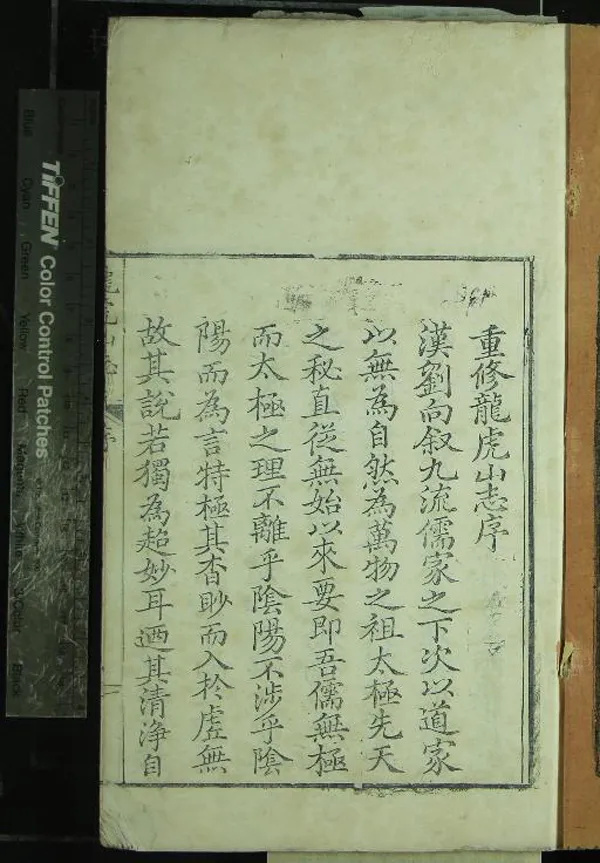 重修龍虎山志序
漢劉向叙九流儒家之下次以道家
以無為自然為萬物之祖太極先天
之秘直從無始以來要即吾儒無極
而太極之理不離乎陰陽不涉乎陰
陽而為言特極其杳眇而入於虛無
故其說若獨為超妙耳迺其清淨自
龍虎山志 序
TIFFEN Color Control Patches
Blue Cyan Green Yellow Red Magenta White 3/Color Black